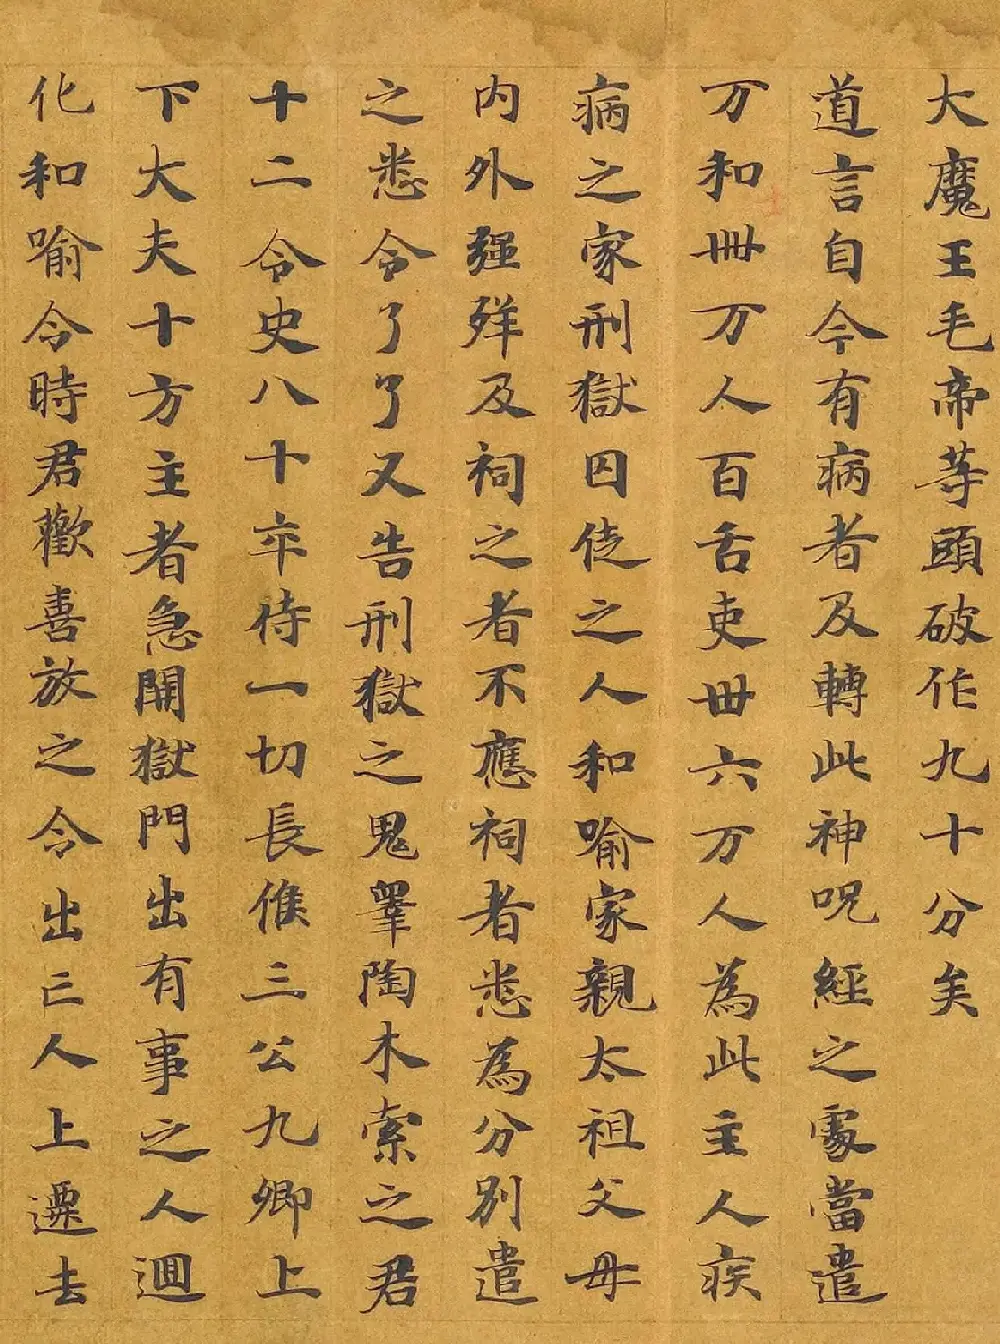 大魔王毛帝等頭破作九十分矣
道言自今有病者及轉此神呪經之處當遣
万和卌万人百舌吏卌六万人為此主人疾
病之家刑獄囚徒之人和喻家親太祖父母
内外強殃及祠之者不應祠者悉為分別遣
之悉令了了又告刑獄之鬼睪陶木索之君
十二令史八十卒待一切長俟三公九卿上
下大夫十方主者急開獄門出有事之人迴
化和喻令時君歡喜放之令出亡人上遷去